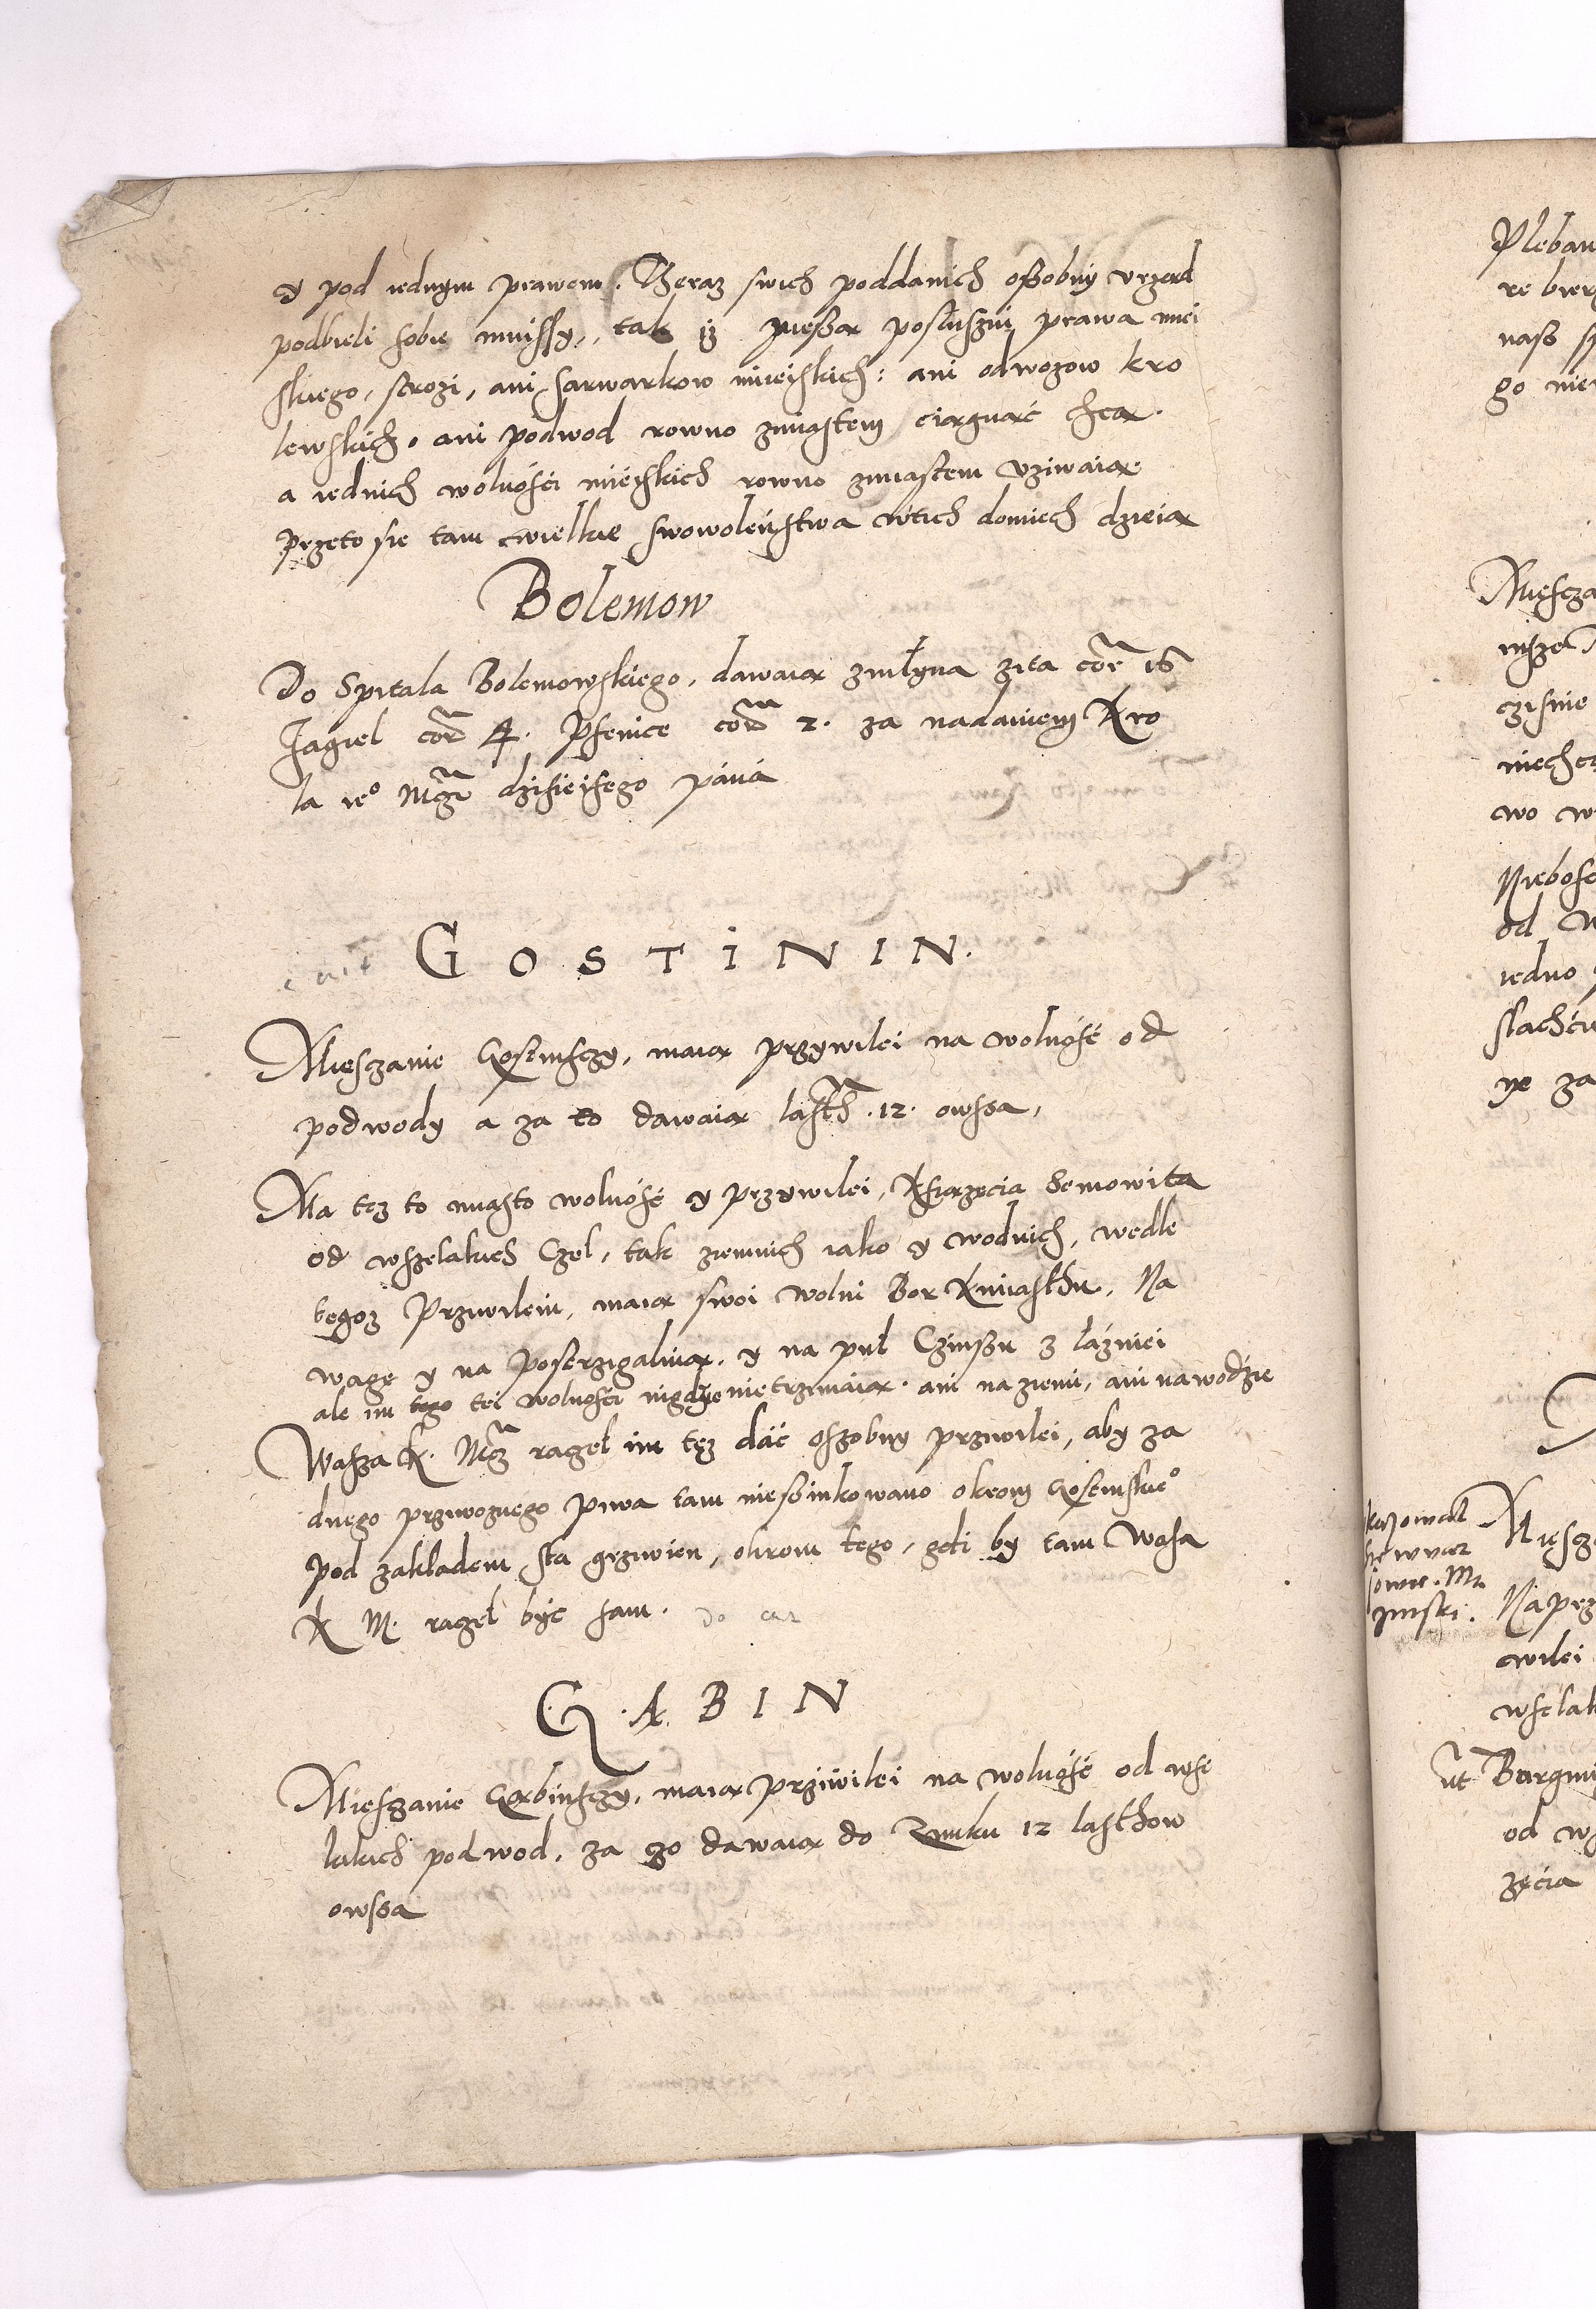 y pod iednym prawem. Teraz swich poddanich oßobny vrzad
podbieli sobie mnissy, tak iz nießą posłuszni prawa miei
skiego, strozi, ani sarwarkow mieiskich: ani odwozow kro
lewskich. ani podwod rowno zmiastem ciągnąć chcą.
a iednich wolności mieiskich rowno zmiastem vziwaią.
przeto sie tam wielkie swowoleństwa wtich domiech dzieią
Bolemow
Do Spitala Bolemowskiego, dawaią zmłyna zita cor 16
Jagiel cor 4. Psenice cor 2. za nadaniem Kro
la ieº Mczi dzisieisego pána
GOSTININ.
Miesczanie Gostinsczy, maią przywilei na wolność od
podwody a za to dawaią lasth .12. owssa,
Ma tez to miasto wolność y przywilei, Ksiązęcia Semowita
od wszelakich Czel, tak ziemnich iako y wodnich, wedle
tegoz Przivileiu, maią swoi wolni Bor Kmiasthu, Na
wagę y na postrzigalnią. y na pul Czinszu z łaźniei
ale im tego tei wolności nigdzie nietrzimaią. ani na ziemi, ani nawodzie
Wasza K. Mcz raczel im tęz dać oszobny prziwilei, aby za
dnego prziwoznego piwa tam nießinkowano okrom Gostinskieº
pod zakładem sta grziwien, okrom tego, gdi by tam Wasa
K M. raczel być sam.
GĄBIN
Miesczanie Gąbinsczy, maią prziwilei na wolność od wse
lakich podwod, za zo dawaią do Zamku 12 lasthow
owssa
Pleban
re bier
naß
go nie
Miescza
czisnie
niechcz
wo w
Niebosc
od w
iedno
slachci
ye za
Miescz
Naprz
wilei
wselak
ut Burgmi
od ws
zęcia